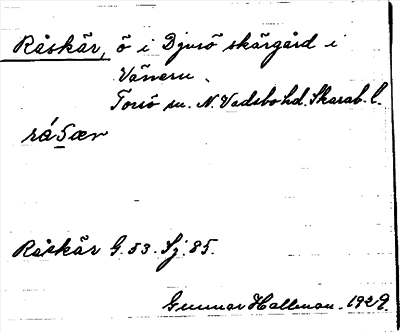 Råskär, ö i Djurö skärgård i
Vänern.
Torsö sn. N. Vadsbo hd. Skarab. l.
råSær
Råskär G. 53. Sj. 85.
Gunnar Hallman. 1929